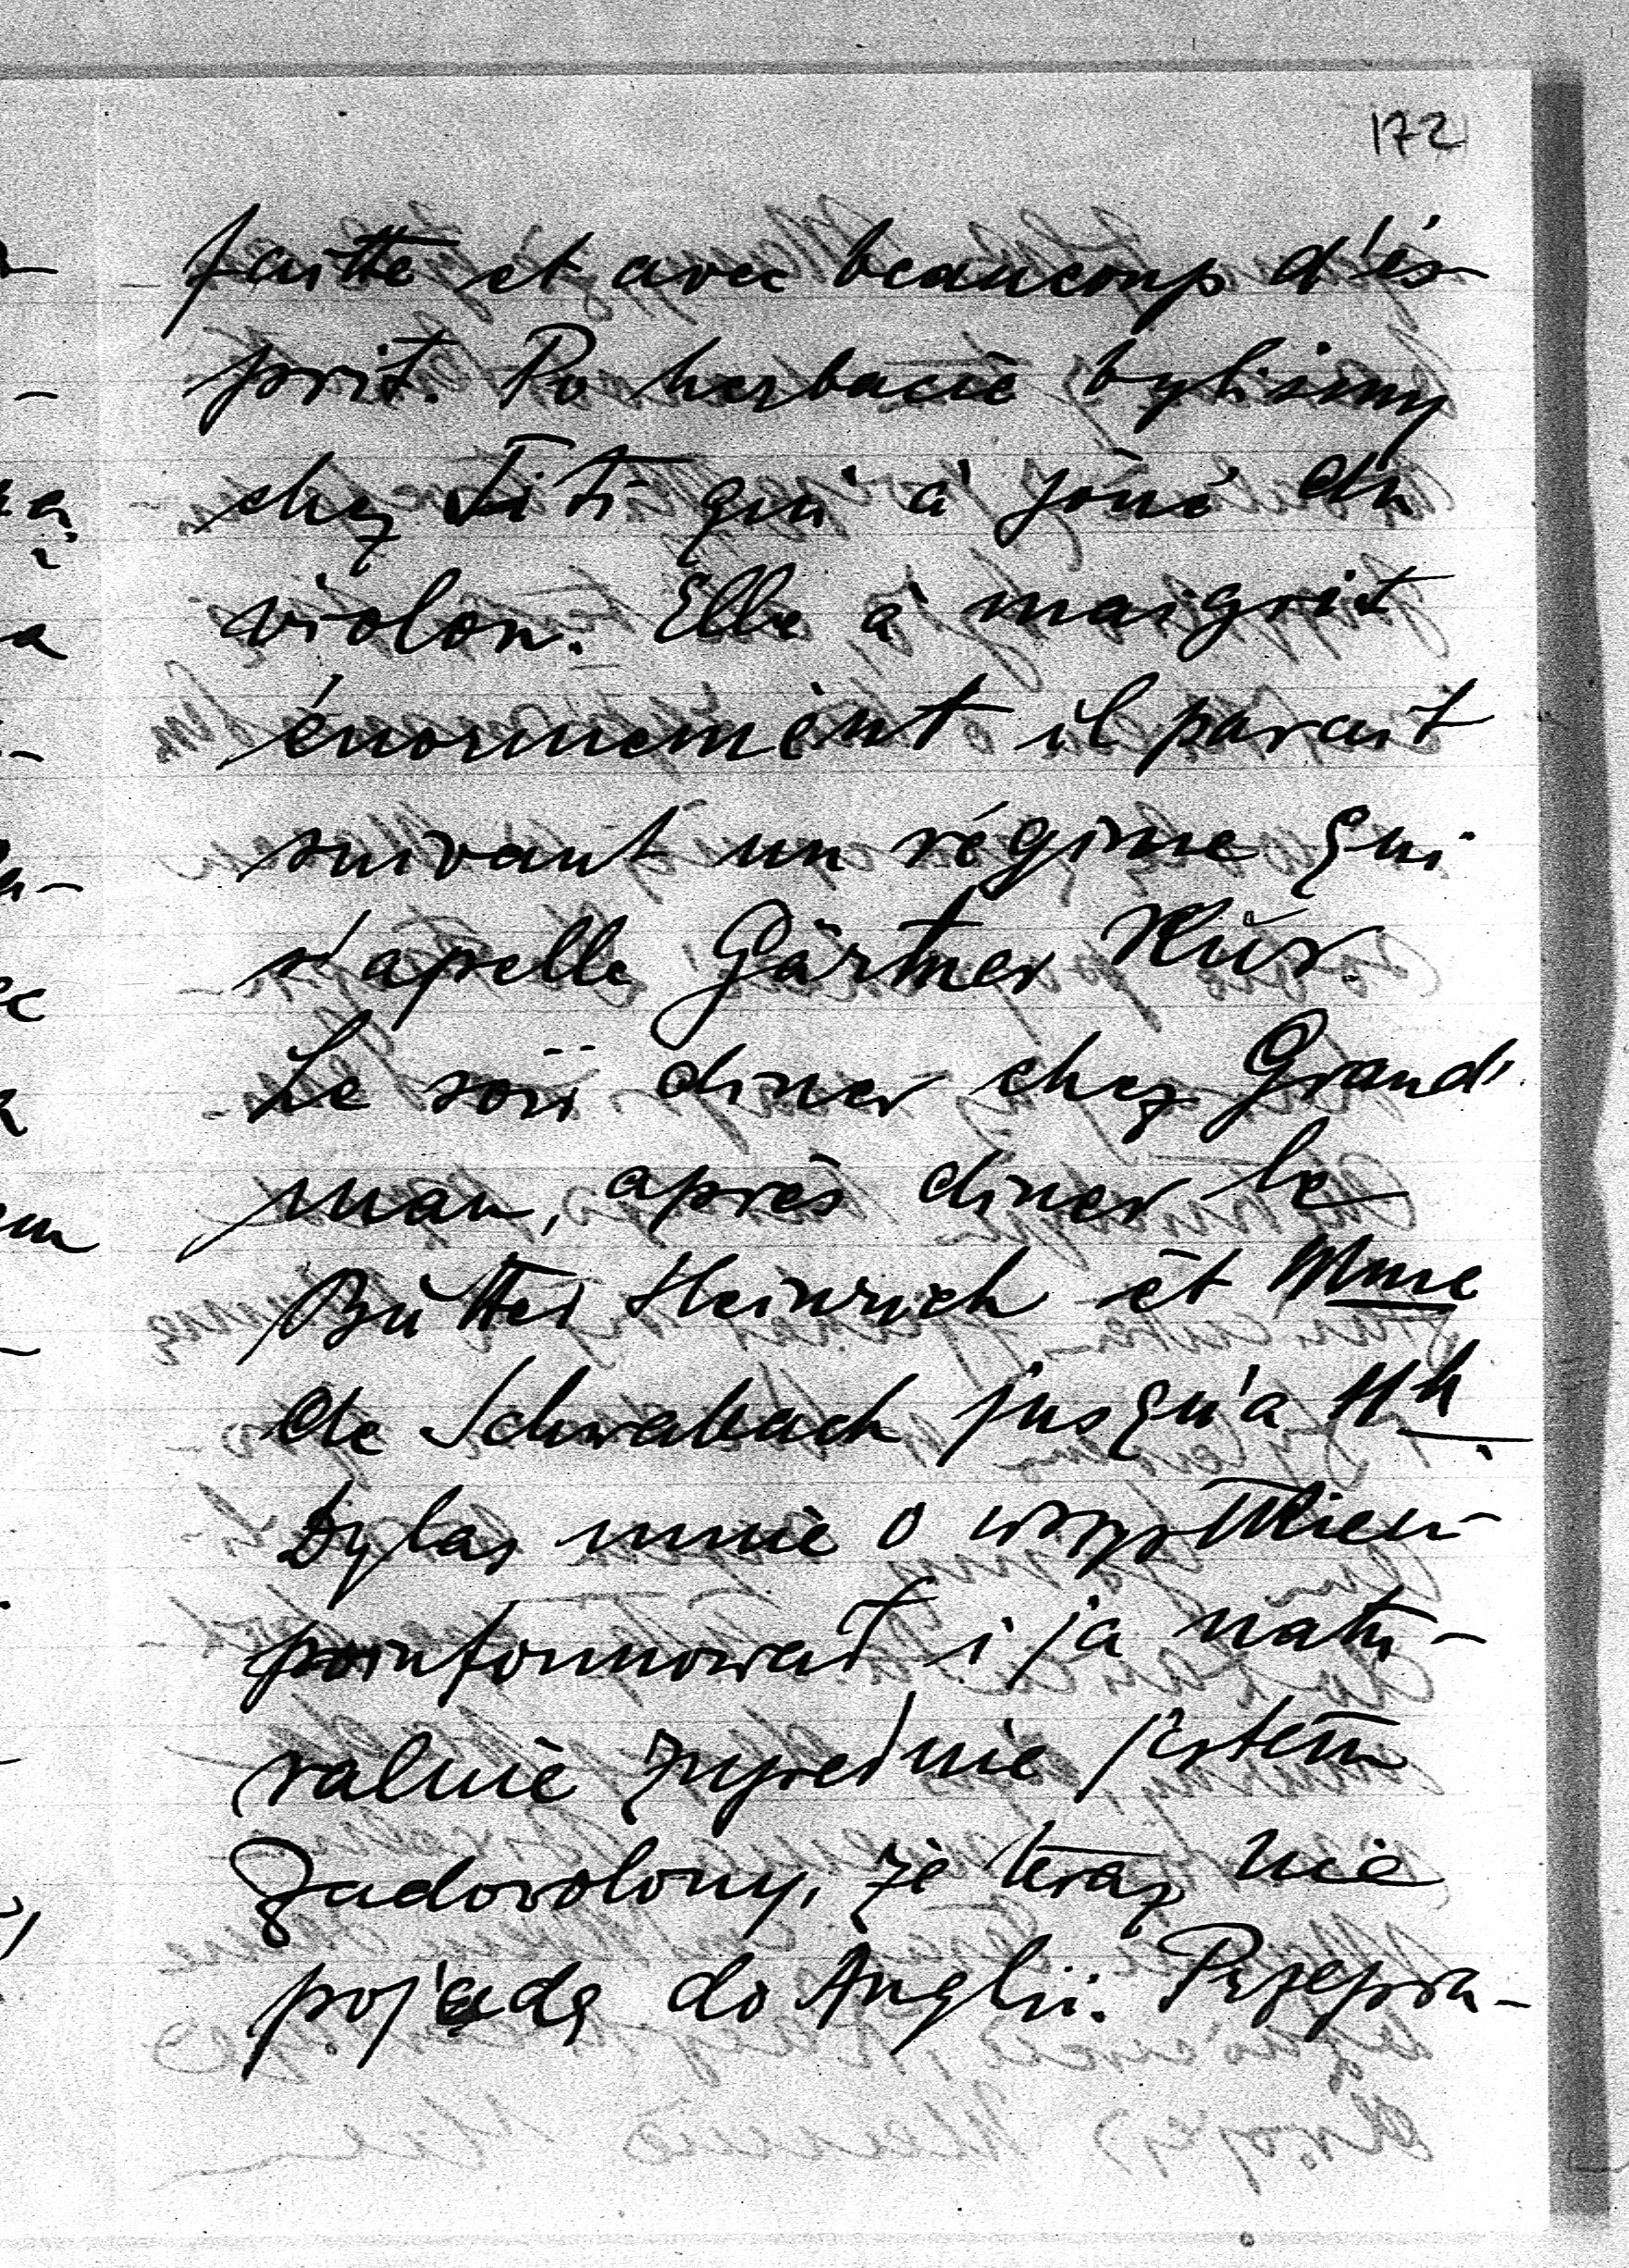 172
faitte et avec beaucoup d'és-
prit. Po herbacie bylismy
chez Fifi qui à joué du
violon. Elle à maigrit
énormement il parait
suivant un régime qui
s'apelle Gärtner Kur.
Le soir diner chez Grand'
man, après diner le
Heinrich et Mme
de Schwabach jusqu'a 11h.
Dylas mnie o wszystkiem
poinformował i ja natu-
ralnie zupełnie jestem
zadowolony, że teraz nie
pojadę do Anglii. Przepra-